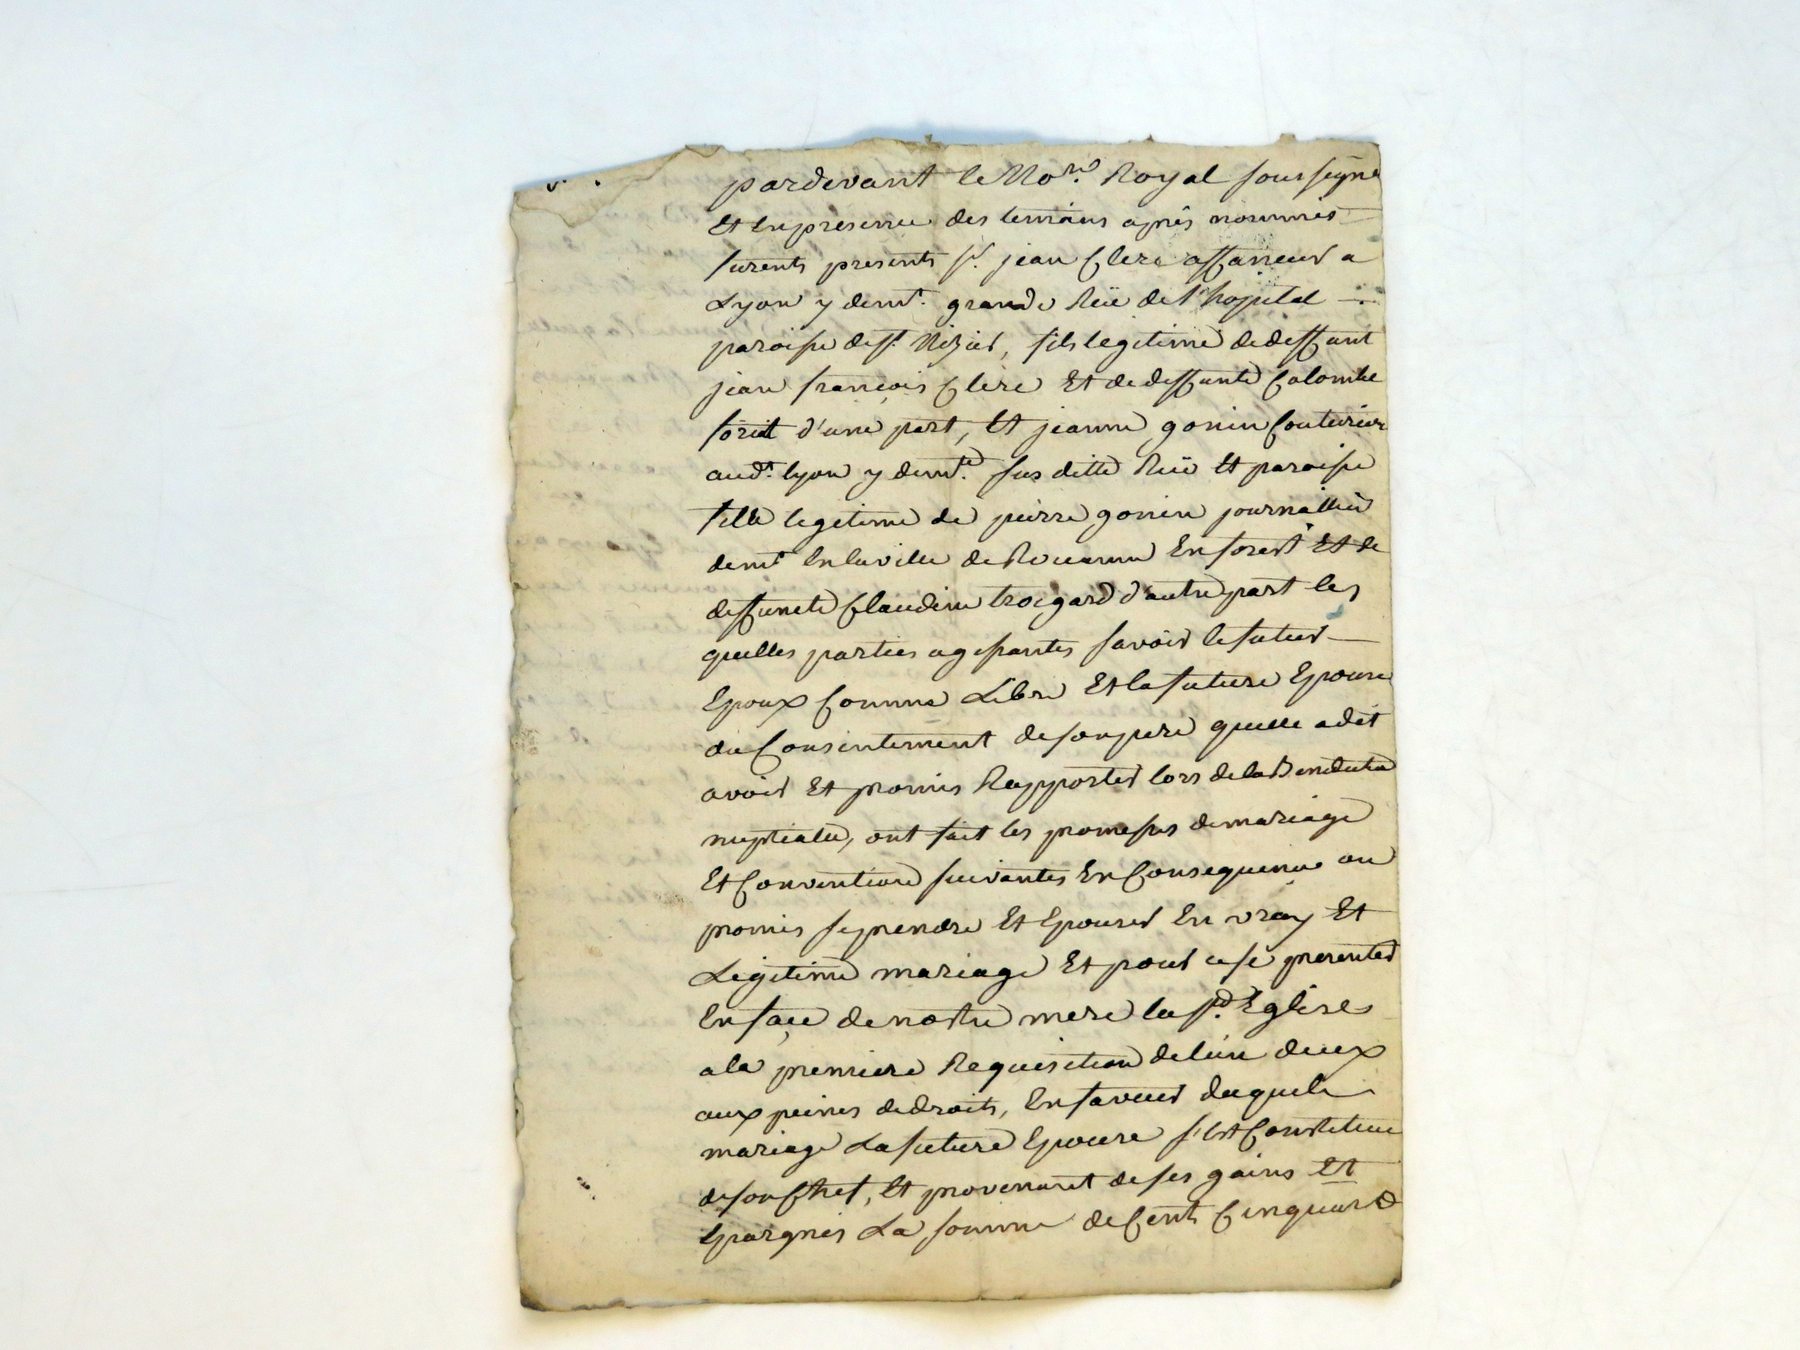 pardevant le No.re Royal soussigné
Et En presence des temoins après nommés
furents presents sr. jean Clerc affaneur a
Lyon y demt. grande Rüe de l'hopital —
paroisse de st. Nizier, fils legitime de deffunt
jean françois Clerc Et de deffunte Colombe
d'une part, Et jeanne gonin Couturiere
audt. lyon y demte. sus ditte Rüe Et paroisse
fille legitime de pierre gonin journallier
demt En la ville de Rouanne En forest Et de
deffuncte Claudine d'autre part les
quelles parties agissantes savoir le futur —
Epoux Comme Libre Et la future Epouse
du Consentement de son pere quelle a dit
avoir Et promis Rapporter lors de la Benediction
nuptialle, ont fait les promesses de mariage
Et Convention suivantes En Consequence on
promis se prendre Et Epouser En vray Et
Legitime mariage Et pour ce se presenter
En façe de nostre mere la ste. Eglise
a la premiere Requisition de l'un deux
aux peines de droits, En faveur duquel
mariage La future Epouse s'est Constituee
de son Chef, Et provenant de ses gains Et
Epargnes La somme de Cent Cinquante